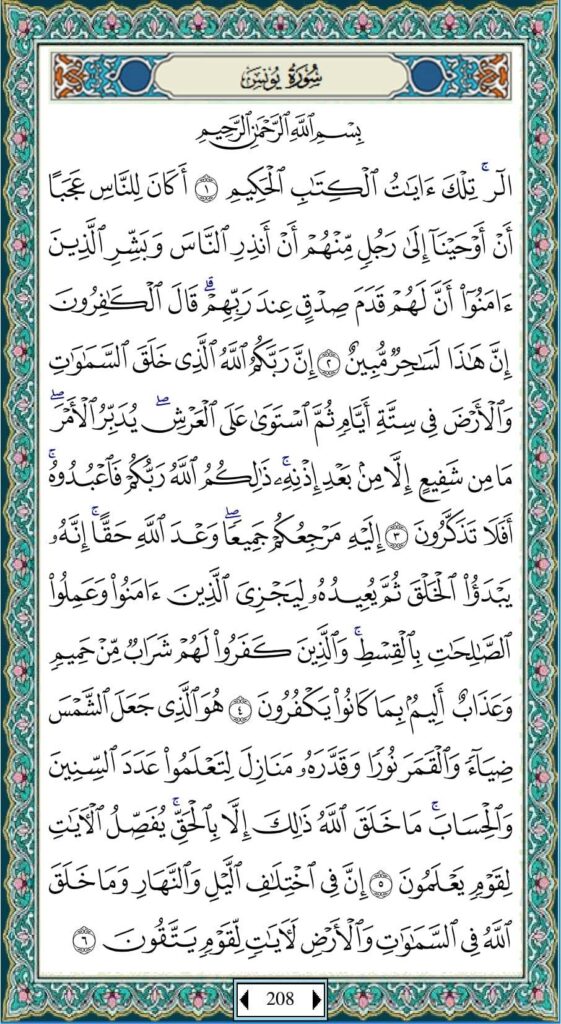 سُورَةُ يُونُسَ
بِسْمِ ٱللَّهِ ٱلرَّحْمَٰنِ ٱلرَّحِيمِ
الٓرۚ تِلْكَ ءَايَٰتُ ٱلْكِتَٰبِ ٱلْحَكِيمِ ۝١ أَكَانَ لِلنَّاسِ عَجَبًا
أَنْ أَوْحَيْنَآ إِلَىٰ رَجُلٍ مِّنْهُمْ أَنْ أَنذِرِ ٱلنَّاسَ وَبَشِّرِ ٱلَّذِينَ
ءَامَنُوٓا۟ أَنَّ لَهُمْ قَدَمَ صِدْقٍ عِندَ رَبِّهِمْۗ قَالَ ٱلْكَٰفِرُونَ
إِنَّ هَٰذَا لَسَٰحِرٌ مُّبِينٌ ۝٢ إِنَّ رَبَّكُمُ ٱللَّهُ ٱلَّذِى خَلَقَ ٱلسَّمَٰوَٰتِ
وَٱلْأَرْضَ فِى سِتَّةِ أَيَّامٍ ثُمَّ ٱسْتَوَىٰ عَلَى ٱلْعَرْشِۖ يُدَبِّرُ ٱلْأَمْرَۖ
مَا مِن شَفِيعٍ إِلَّا مِنۢ بَعْدِ إِذْنِهِۦۚ ذَٰلِكُمُ ٱللَّهُ رَبُّكُمْ فَٱعْبُدُوهُۚ
أَفَلَا تَذَكَّرُونَ ۝٣ إِلَيْهِ مَرْجِعُكُمْ جَمِيعًاۖ وَعْدَ ٱللَّهِ حَقًّاۚ إِنَّهُۥ
يَبْدَؤُا۟ ٱلْخَلْقَ ثُمَّ يُعِيدُهُۥ لِيَجْزِىَ ٱلَّذِينَ ءَامَنُوا۟ وَعَمِلُوا۟
ٱلصَّٰلِحَٰتِ بِٱلْقِسْطِۚ وَٱلَّذِينَ كَفَرُوا۟ لَهُمْ شَرَابٌ مِّنْ حَمِيمٍ
وَعَذَابٌ أَلِيمٌۢ بِمَا كَانُوا۟ يَكْفُرُونَ ۝٤ هُوَ ٱلَّذِى جَعَلَ ٱلشَّمْسَ
ضِيَآءً وَٱلْقَمَرَ نُورًا وَقَدَّرَهُۥ مَنَازِلَ لِتَعْلَمُوا۟ عَدَدَ ٱلسِّنِينَ
وَٱلْحِسَابَۚ مَا خَلَقَ ٱللَّهُ ذَٰلِكَ إِلَّا بِٱلْحَقِّۚ يُفَصِّلُ ٱلْءَايَٰتِ
لِقَوْمٍ يَعْلَمُونَ ۝٥ إِنَّ فِى ٱخْتِلَٰفِ ٱلَّيْلِ وَٱلنَّهَارِ وَمَا خَلَقَ
ٱللَّهُ فِى ٱلسَّمَٰوَٰتِ وَٱلْأَرْضِ لَءَايَٰتٍ لِّقَوْمٍ يَتَّقُونَ ۝٦
208